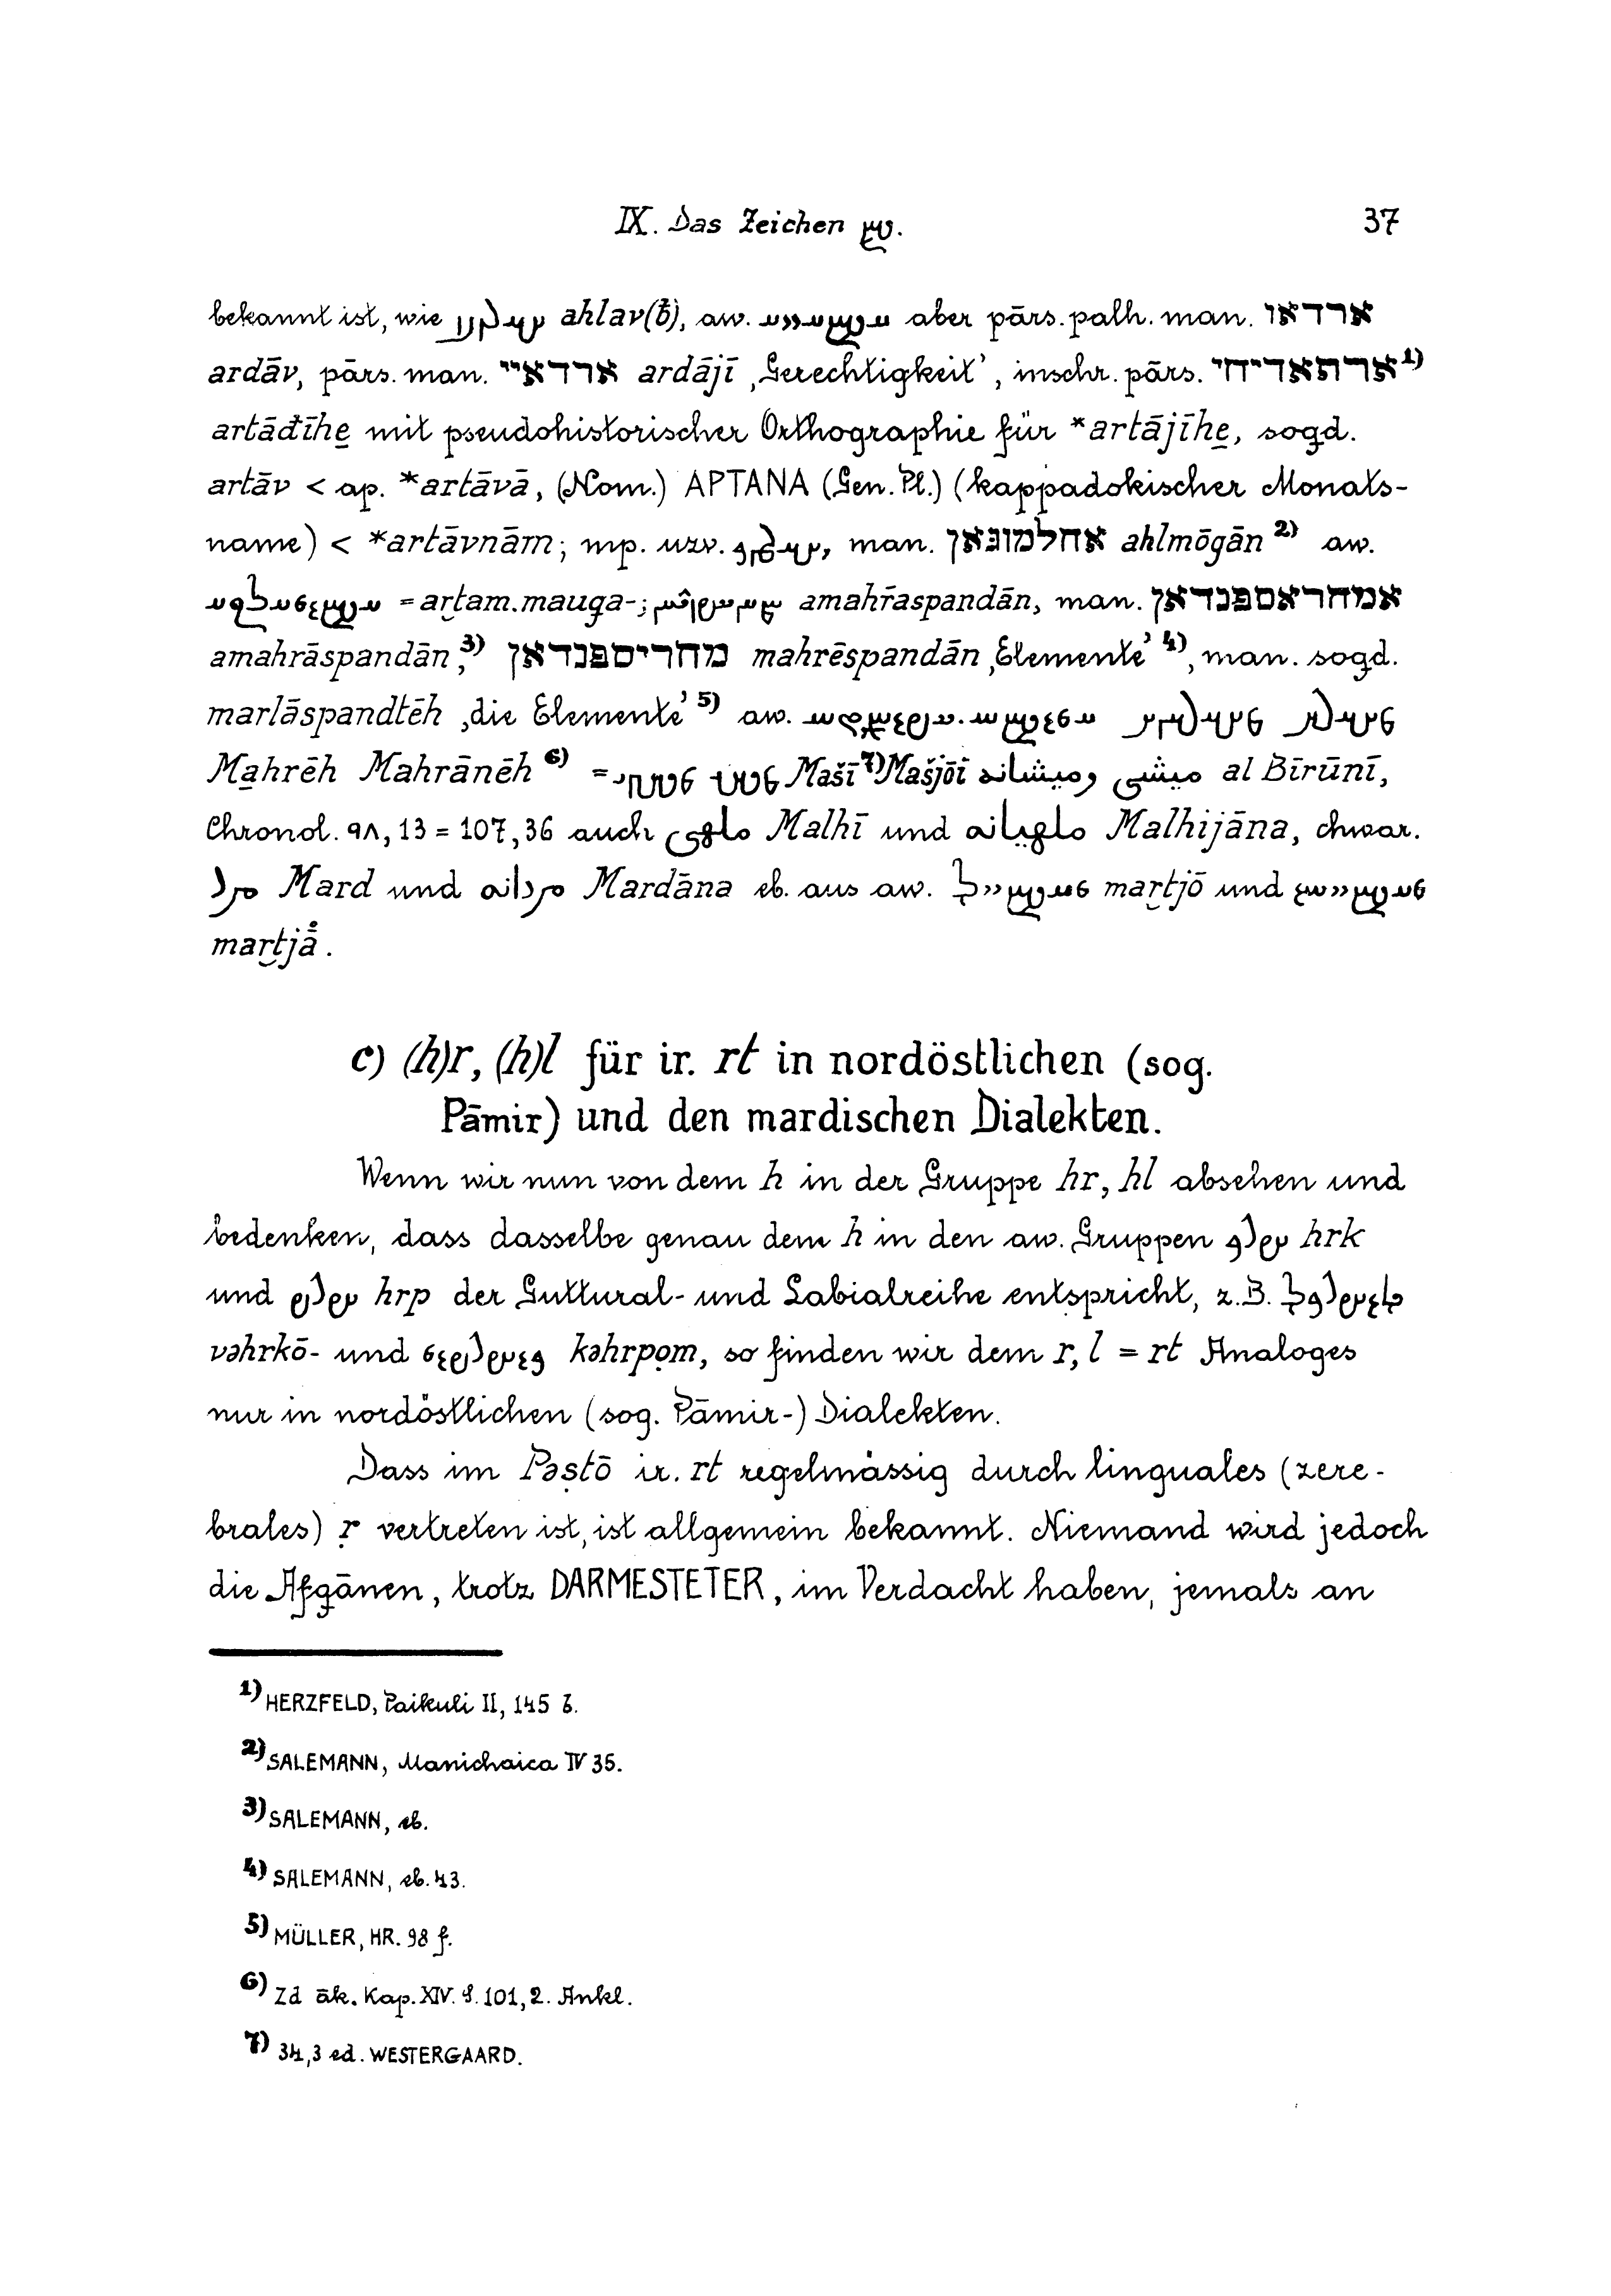 IX. Das Zeichen 𐬴.                37
bekannt ist, wie ahlav(ƀ), aw. aber pārs. palh. man. ארדאו
ardāv, pārs. man. ארדאיי ardājī ‚Gerechtigkeit’, inschr. pārs. ארתאדיחי¹⁾
artāđīhe̱ mit pseudohistorischer Orthographie für *artājīhe̱, sogd.
artāv < ap. *artāvā, (Nom.) ΑΡΤΑΝΑ (Gen. Pl.) (kappadokischer Monats-
name) < *artāvnām; mp. uzv. , man. אחלמוגאן ahlmōgān²⁾ aw.
= ar̮tam.mauga-; amahr̄aspandān, man. אמחראספנדאן
amahrāspandān,³⁾ מחריספנדאן mahrēspandān ‚Elemente’⁴⁾, man. sogd.
marlāspandtēh ‚die Elemente’⁵⁾ aw.
Ma̱hrēh Mahrānēh⁶⁾ = Mašī⁷⁾ Mašjōī ميشى وميشانه al Bīrūnī,
Chronol. ٩٨, 13 = 107, 36 auch ملهى Malhī und ملهيانه Malhijāna, chwar.
مرد Mard und مردانه Mardāna eb. aus aw. mar̮tjō und
mar̮tjā̊.
c) (h)r, (h)l für ir. rt in nordöstlichen (sog.
Pāmir) und den mardischen Dialekten.
Wenn wir nun von dem h in der Gruppe hr, hl absehen und
bedenken, dass dasselbe genau dem h in den aw. Gruppen hrk
und hrp der Guttural- und Labialreihe entspricht, z. B.
vəhrkō- und kəhrpo̱m, so finden wir dem r, l = rt Analoges
nur in nordöstlichen (sog. Pāmir-) Dialekten.
Dass im Pəṣtō ir. rt regelmässig durch linguales (zere-
brales) ṛ vertreten ist, ist allgemein bekannt. Niemand wird jedoch
die Afgānen, trotz DARMESTETER, im Verdacht haben, jemals an
¹⁾ HERZFELD, Paikuli II, 145 b.
²⁾ SALEMANN, Manichaica IV 35.
³⁾ SALEMANN, eb.
⁴⁾ SALEMANN, eb. 43.
⁵⁾ MÜLLER, HR. 98 f.
⁶⁾ Zd āk. Kap. XIV. S. 101, 2. Ankl.
⁷⁾ 34,3 ed. WESTERGAARD.